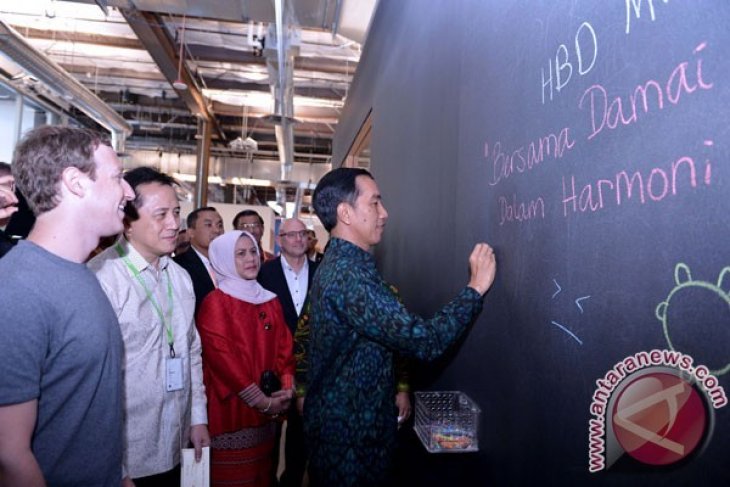 HBD
"Bersama Damai
Dalam Harmoni
www.antaranews.com